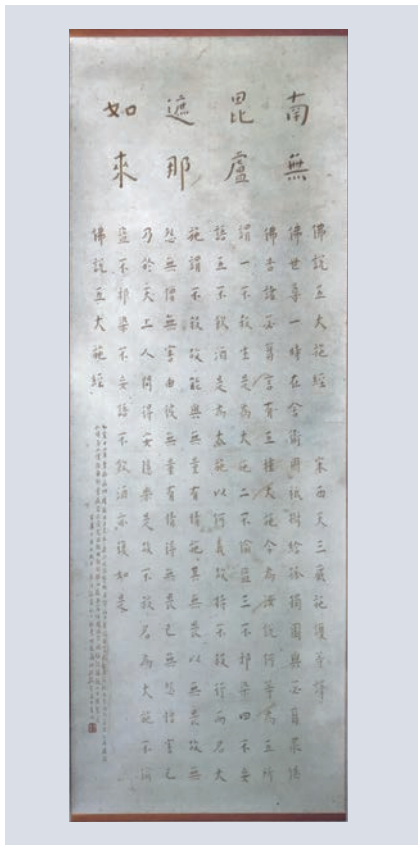 南無
毘盧
遮那
如來
佛說五大施經 宋西天三藏施護等譯
佛世尊一時在舍衛國祇樹給孤獨園與苾芻眾俱
佛告諸苾芻言有五種大施今為汝說何等為五所
謂一不殺生是為大施二不偷盜三不邪染四不妄
語五不飲酒是為大施以何義故持不殺行而名大
施謂不殺故能與無量有情施其無畏以無畏故無
怨無憎無害由彼無量有情得無畏已無怨憎害已
乃於天上人間得安隱樂是故不殺名為大施不偷
盜不邪染不妄語不飲酒亦復如是
佛說五大施經